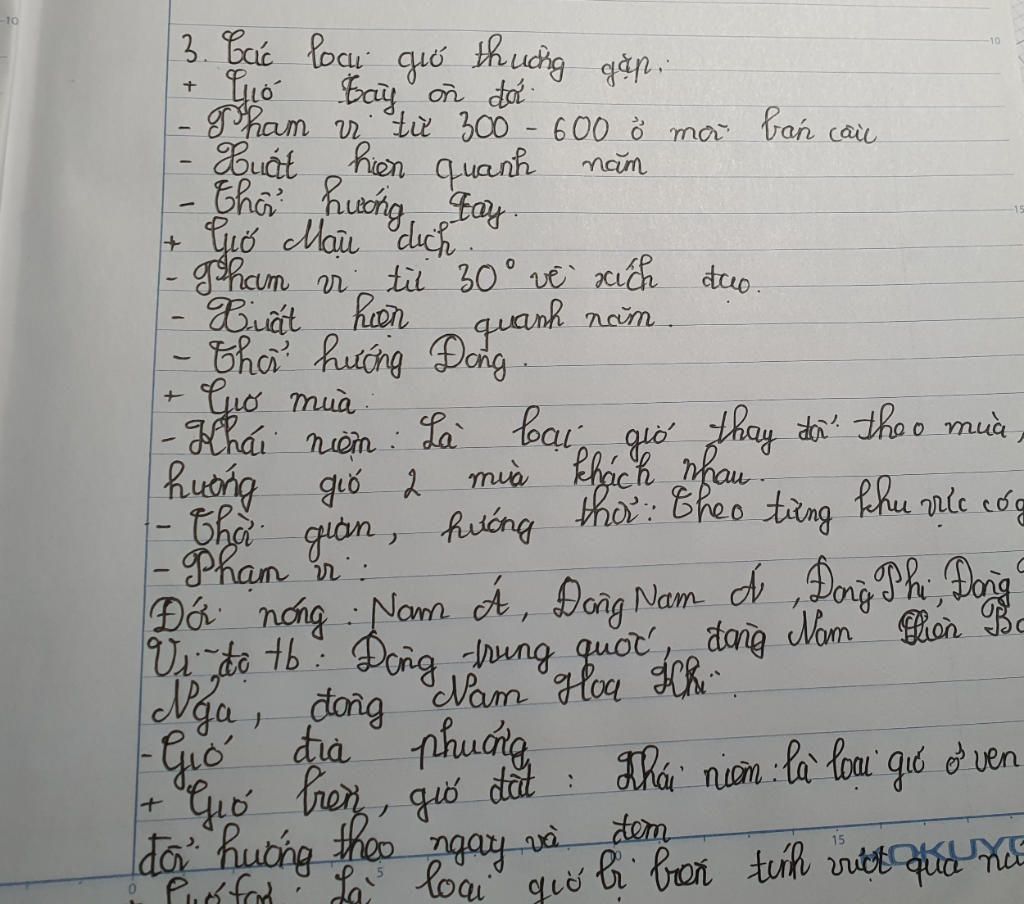 3. Các loại gió thường gặp.
+ Gió Tây ôn đới
- Phạm vi từ 300 - 600 ở mỗi bán cầu
- Xuất hiện quanh năm
- Thổi hướng Tây.
+ Gió Mậu dịch.
- Phạm vi từ 30° về xích đạo.
- Xuất hiện quanh năm.
- Thổi hướng Đông.
+ Gió mùa.
- Khái niệm: Là loại gió thay đổi theo mùa,
hướng gió 2 mùa khách nhau.
- Thời gian, hướng thổi: Theo từng khu vực có g
- Phạm vi:
Đới nóng: Nam Á, Đông Nam Á, Đông Phi, Đông
Vĩ độ tb: Đông trung quốc, đông Nam
Nga, đông Nam Hoa Kỳ.
- Gió địa phương
+ Gió biển, gió đất: Khái niệm: là loại gió ở ven
đổi hướng theo ngày và đêm
: Là loại gió bị biến tính vượt qua
10
10
15
0
5
15
KOKUYO